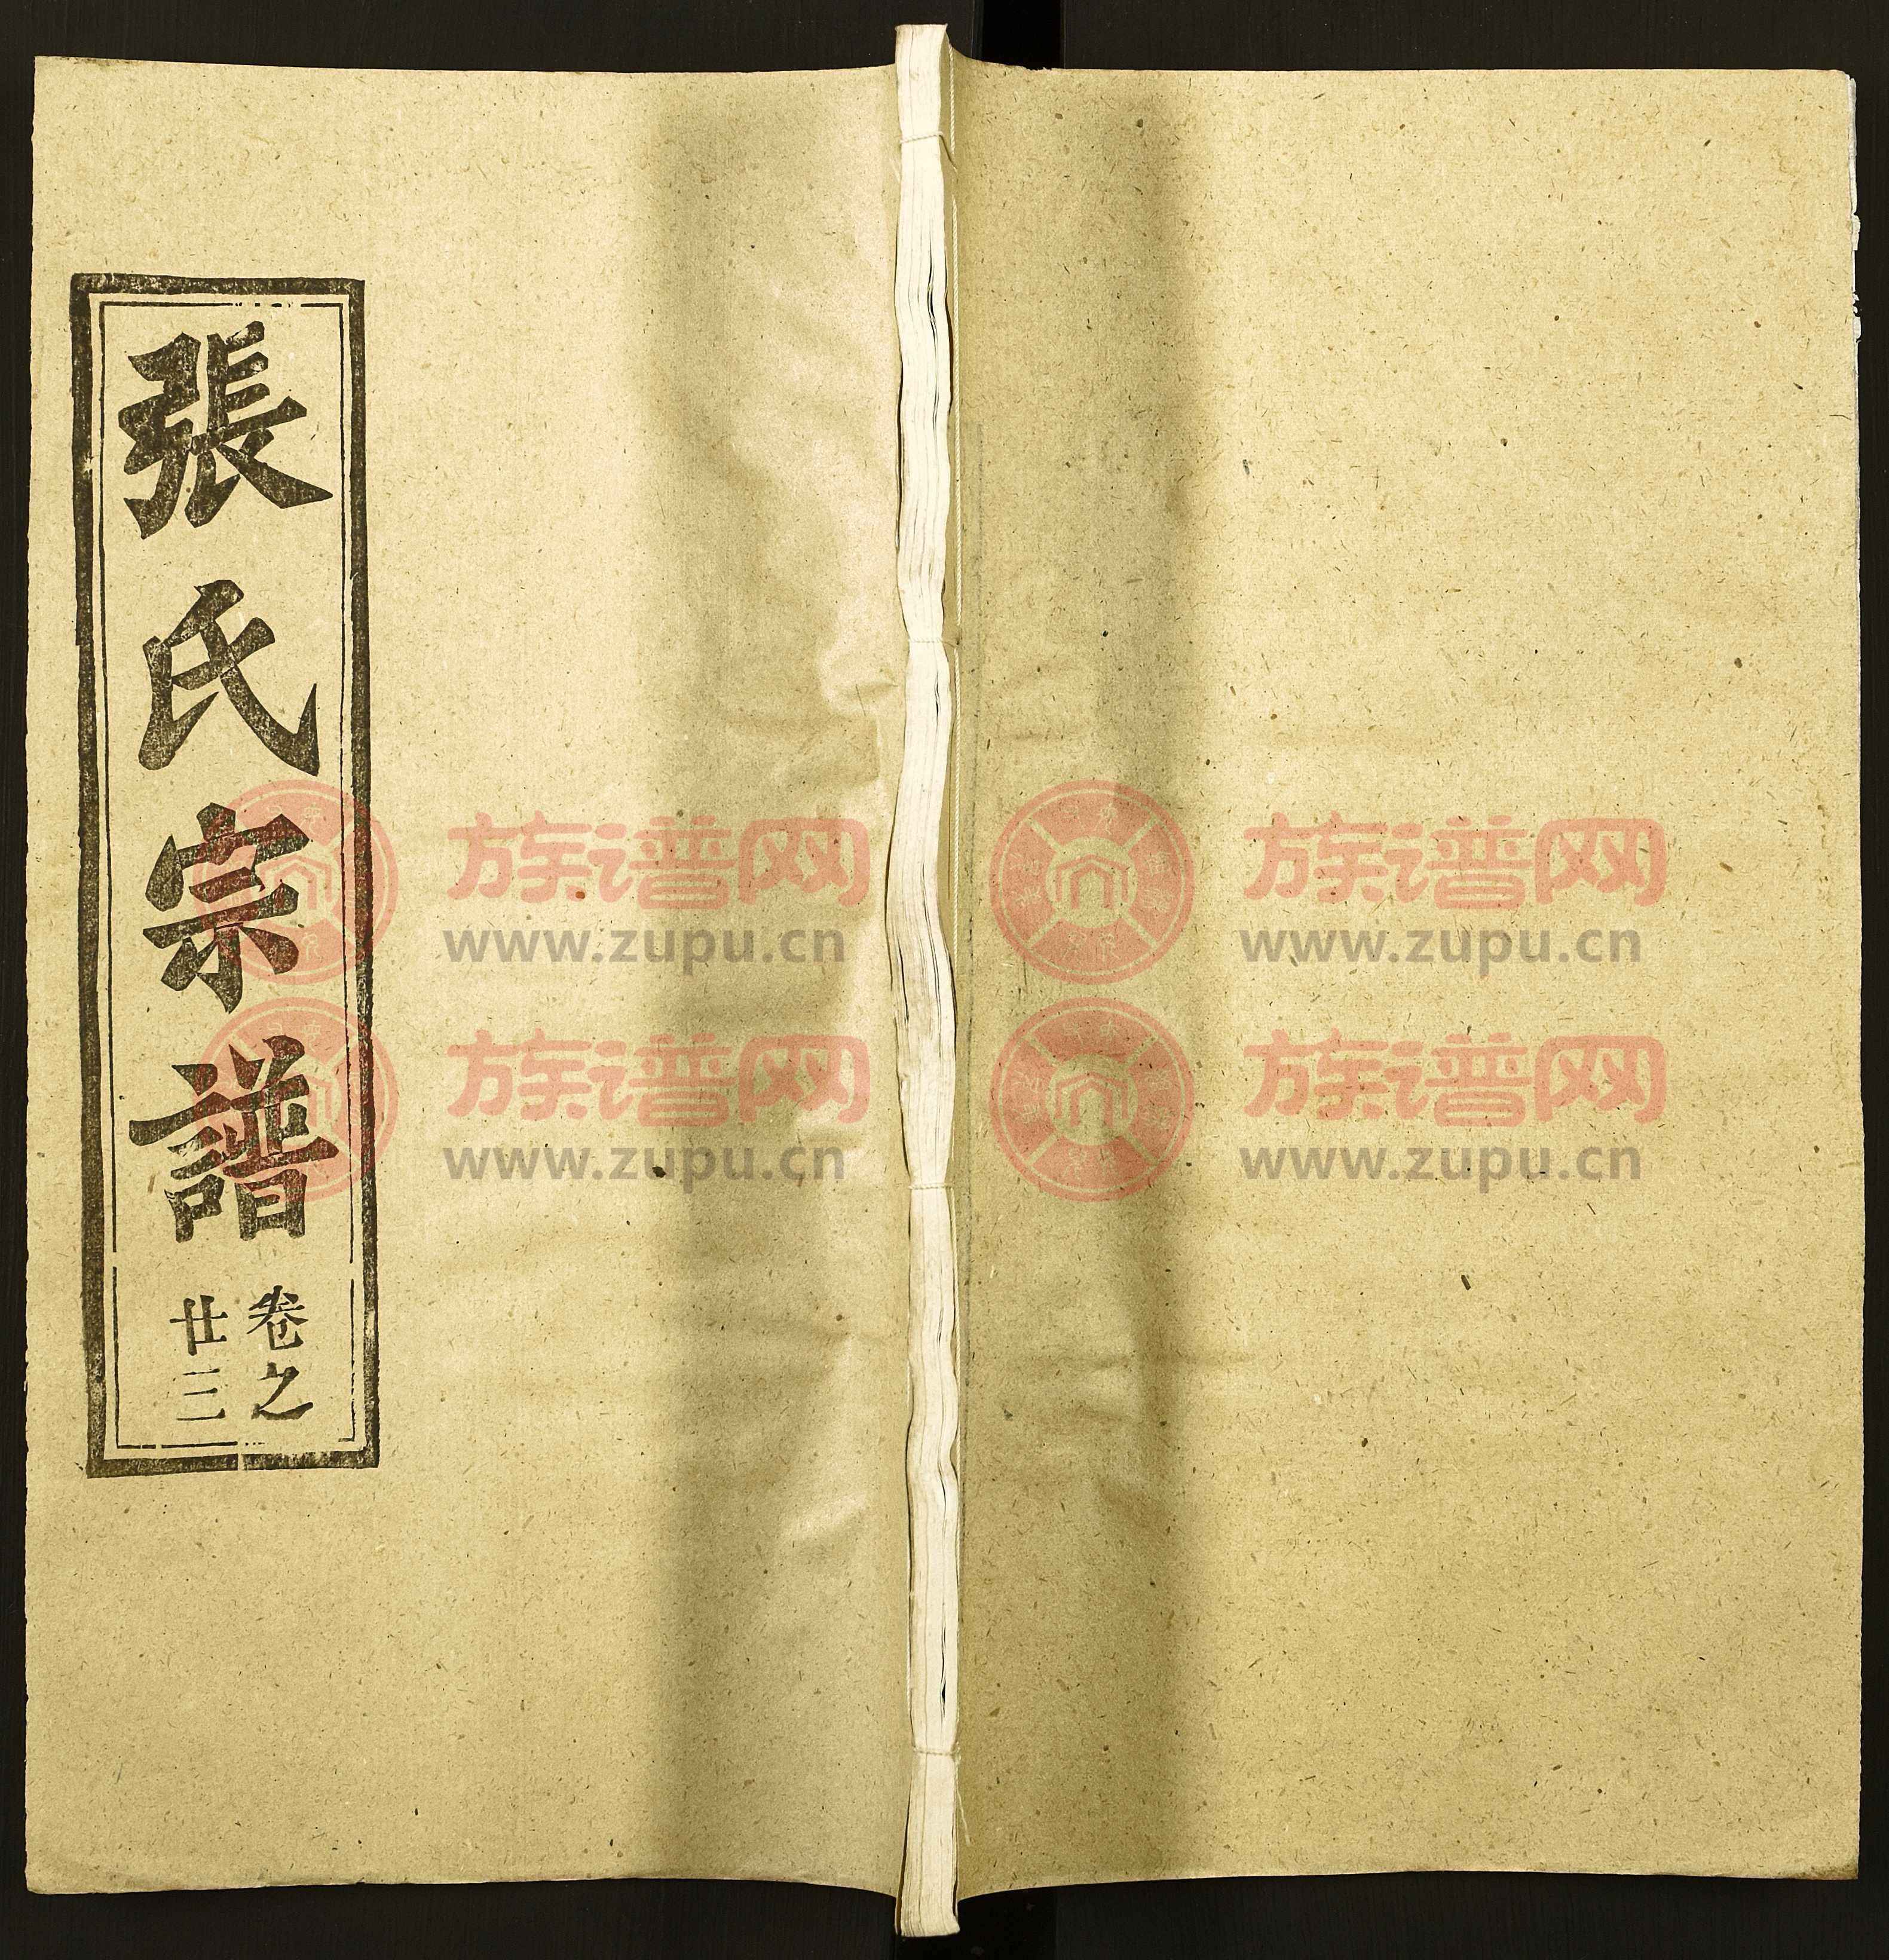 張氏宗譜
卷之
廿三
族谱网 族谱网
www.zupu.cn www.zupu.cn
族谱网 族谱网
www.zupu.cn www.zupu.cn